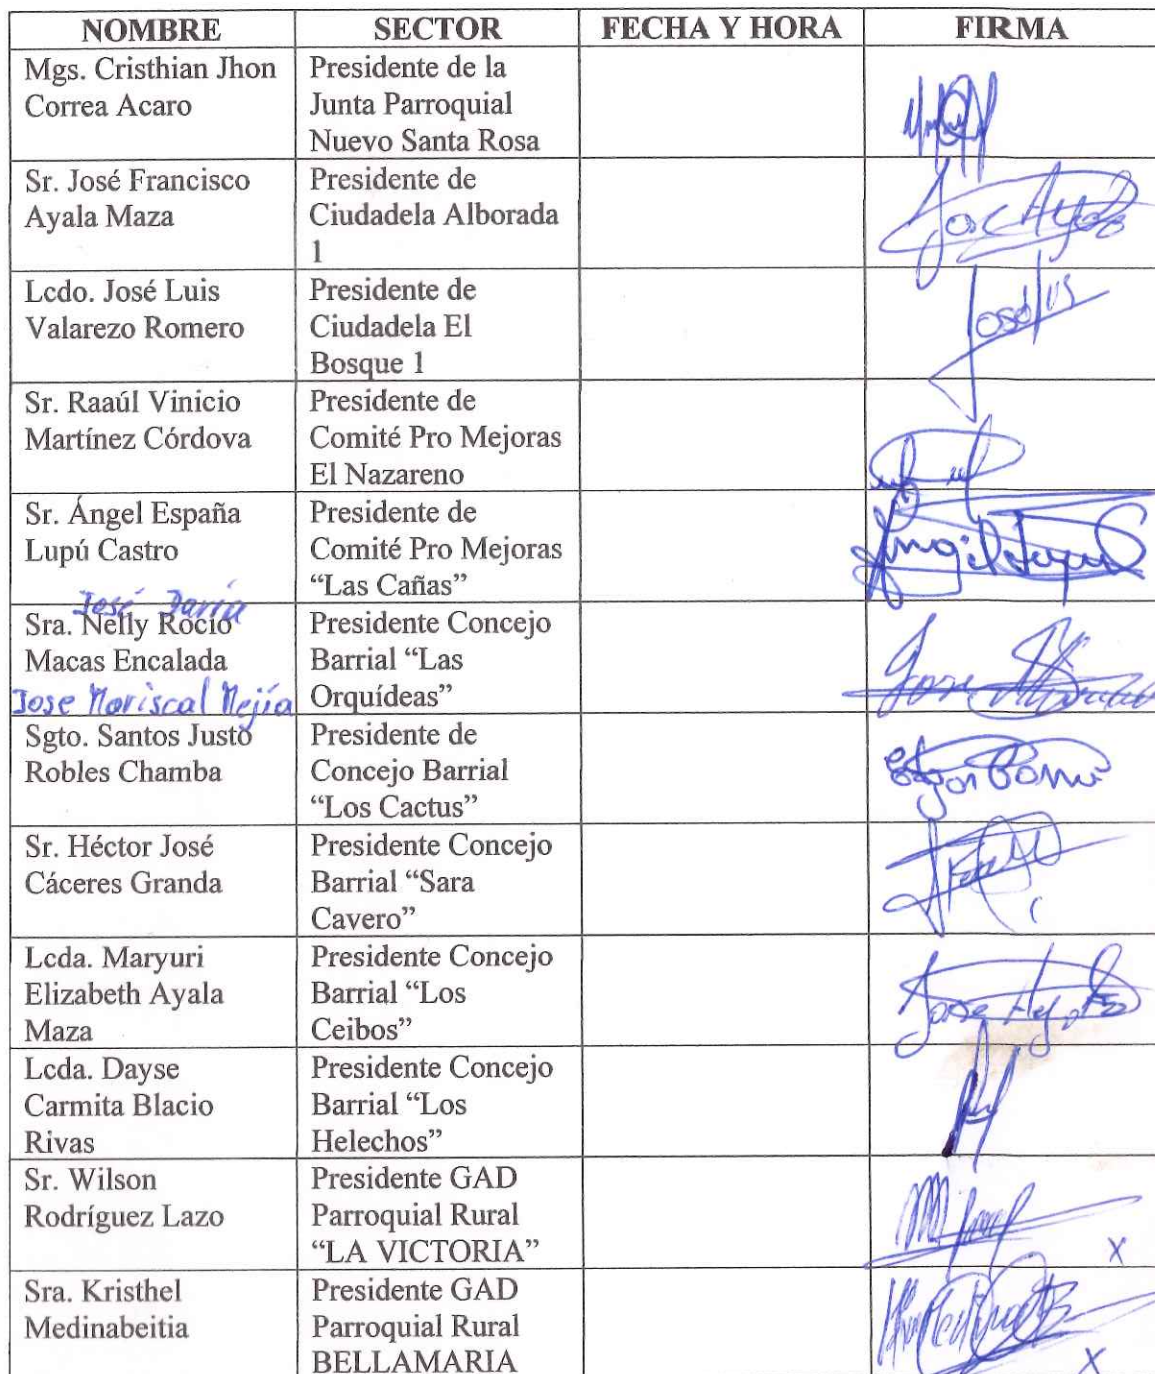 NOMBRE SECTOR FECHA Y HORA FIRMA
Mgs. Cristhian Jhon
Correa Acaro
Presidente de la
Junta Parroquial
Nuevo Santa Rosa
Sr. José Francisco
Ayala Maza
Presidente de
Ciudadela Alborada
1
Jose Ayala
Lcdo. José Luis
Valarezo Romero
Presidente de
Ciudadela El
Bosque 1
José Luis
Sr. Raaúl Vinicio
Martínez Córdova
Presidente de
Comité Pro Mejoras
El Nazareno
Sr. Ángel España
Lupú Castro
Presidente de
Comité Pro Mejoras
“Las Cañas”
Angel Lupu
José Daría
Sra. Nelly Rocío
Macas Encalada
Jose Mariscal Mejía
Presidente Concejo
Barrial “Las
Orquídeas”
Jose
Sgto. Santos Justo
Robles Chamba
Presidente de
Concejo Barrial
“Los Cactus”
Sr. Héctor José
Cáceres Granda
Presidente Concejo
Barrial “Sara
Cavero”
Lcda. Maryuri
Elizabeth Ayala
Maza
Presidente Concejo
Barrial “Los
Ceibos”
Jose Ayala
Lcda. Dayse
Carmita Blacio
Rivas
Presidente Concejo
Barrial “Los
Helechos”
Sr. Wilson
Rodríguez Lazo
Presidente GAD
Parroquial Rural
“LA VICTORIA”
X
Sra. Kristhel
Medinabeitia
Presidente GAD
Parroquial Rural
BELLAMARIA
X